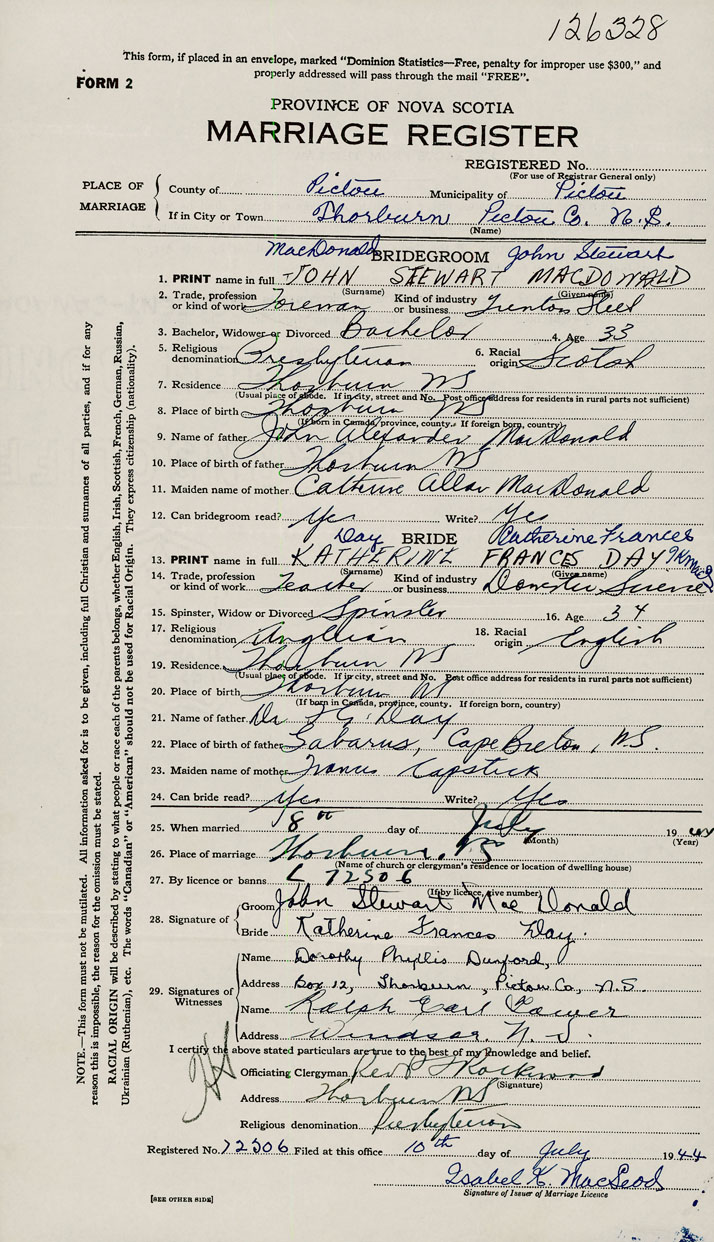 126328
This form, if placed in an envelope, marked "Dominion Statistics—Free, penalty for improper use $300," and
properly addressed will pass through the mail "FREE".
FORM 2
PROVINCE OF NOVA SCOTIA
MARRIAGE REGISTER
REGISTERED No.
(For use of Registrar General only)
PLACE OF MARRIAGE
County of Pictou Municipality of Pictou
If in City or Town Thorburn Pictou Co. N.S.
(Name)
MacDonald BRIDEGROOM John Stewart
1. PRINT name in full JOHN STEWART MACDONALD
(Surname) (Given name)
2. Trade, profession or kind of work Foreman Kind of industry or business Trenton Steel
3. Bachelor, Widower or Divorced Bachelor 4. Age 33
5. Religious denomination Presbyterian 6. Racial origin Scotch
7. Residence Thorburn NS
(Usual place of abode. If in city, street and No. Post office address for residents in rural parts not sufficient)
8. Place of birth Thorburn NS
(If born in Canada, province, county. If foreign born, country)
9. Name of father John Alexander MacDonald
10. Place of birth of father Thorburn NS
11. Maiden name of mother Catherine Allan MacDonald
12. Can bridegroom read? Yes Write? Yes
Day BRIDE Catherine Frances
13. PRINT name in full KATHERINE FRANCES DAY
(Surname) (Given name)
14. Trade, profession or kind of work Teacher Kind of industry or business Domestic Science
15. Spinster, Widow or Divorced Spinster 16. Age 34
17. Religious denomination Anglican 18. Racial origin English
19. Residence Thorburn NS
(Usual place of abode. If in city, street and No. Post office address for residents in rural parts not sufficient)
20. Place of birth Thorburn NS
(If born in Canada, province, county. If foreign born, country)
21. Name of father Dr Day
22. Place of birth of father Gabarus, Cape Breton, N.S.
23. Maiden name of mother Frances Capstick
24. Can bride read? Yes Write? Yes
25. When married 8th day of July 1944
(Month) (Year)
26. Place of marriage Thorburn, NS
(Name of church or clergyman's residence or location of dwelling house)
27. By licence or banns L 72506
(If by licence, give number)
28. Signature of
Groom John Stewart MacDonald
Bride Katherine Frances Day.
29. Signatures of Witnesses
Name Dorothy Phyllis Dunford,
Address Box 12, Thorburn, Pictou Co, N.S.
Name Ralph Earl
Address Windsor. N.S.
I certify the above stated particulars are true to the best of my knowledge and belief.
Officiating Clergyman Rev
(Signature)
Address Thorburn NS
Religious denomination Presbyterian
Registered No. 72506 Filed at this office 10th day of July 1944
Isabel K. MacLeod
Signature of Issuer of Marriage Licence
[SEE OTHER SIDE]
NOTE.—This form must not be mutilated. All information asked for is to be given, including full Christian and surnames of all parties, and if for any
reason this is impossible, the reason for the omission must be stated.
RACIAL ORIGIN will be described by stating to what people or race each of the parents belongs, whether English, Irish, Scottish, French, German, Russian,
Ukrainian (Ruthenian), etc. The words "Canadian" or "American" should not be used for Racial Origin. They express citizenship (nationality).